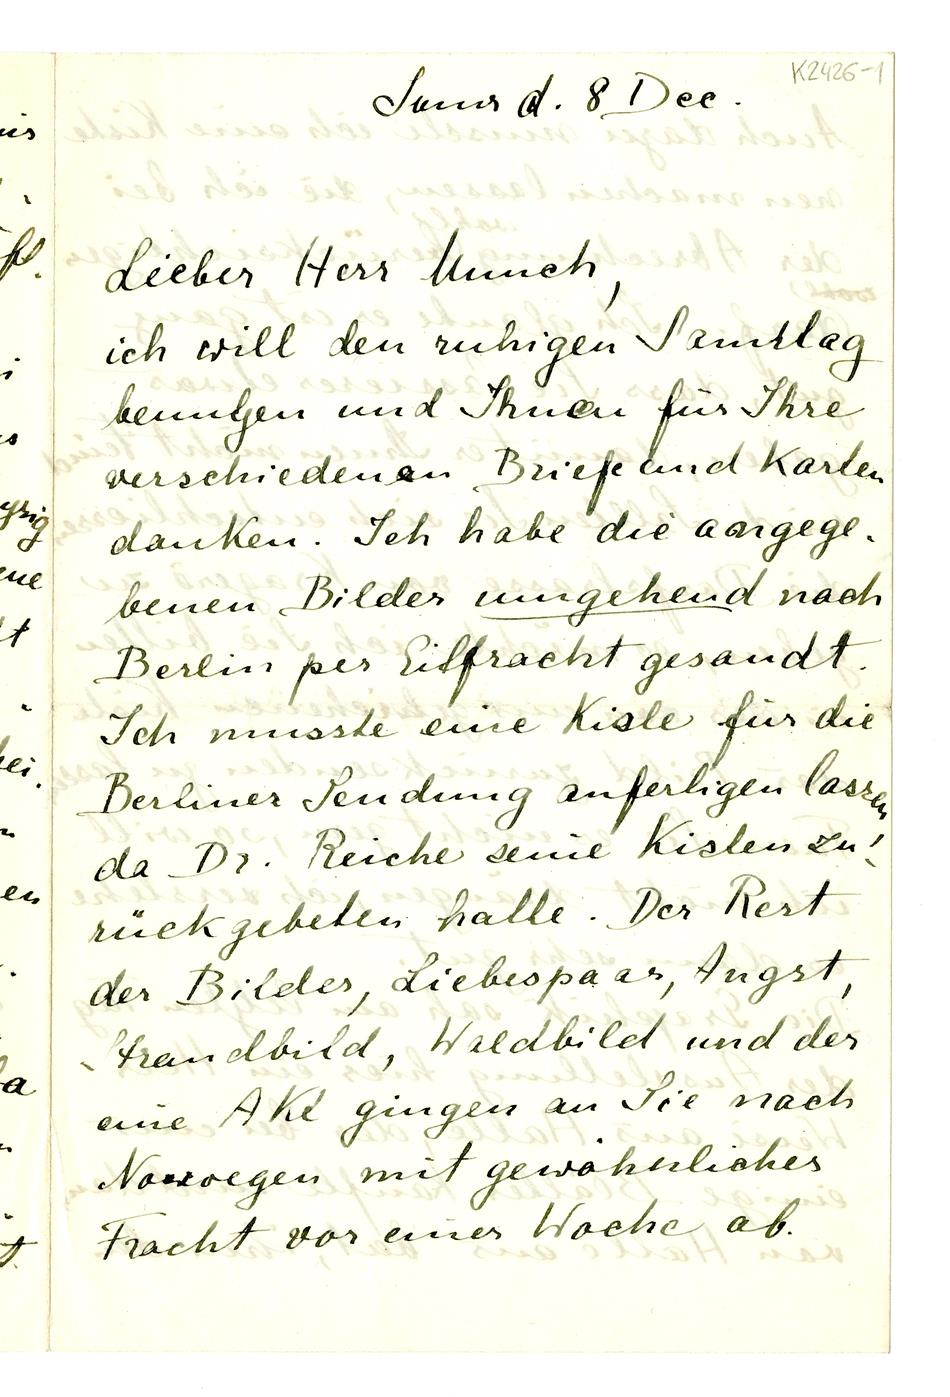 K2426-1
d. 8 Dec.
Lieber Herr Munch,
ich will den ruhigen Samstag
benutzen und Ihnen für Ihre
verschiedenen Briefe und Karten
danken. Ich habe die angege-
benen Bilder umgehend nach
Berlin per Eilfracht gesandt.
Ich musste eine Kiste für die
Berliner Sendung anfertigen lassen
da Dr. Reiche seine Kisten zu-
rückgebeten hatte. Der Rest
der Bilder, Liebespaar, Angst,
Strandbild, Waldbild und der
eine Akt gingen an Sie nach
Norwegen mit gewöhnlicher
Fracht vor einer Woche ab.